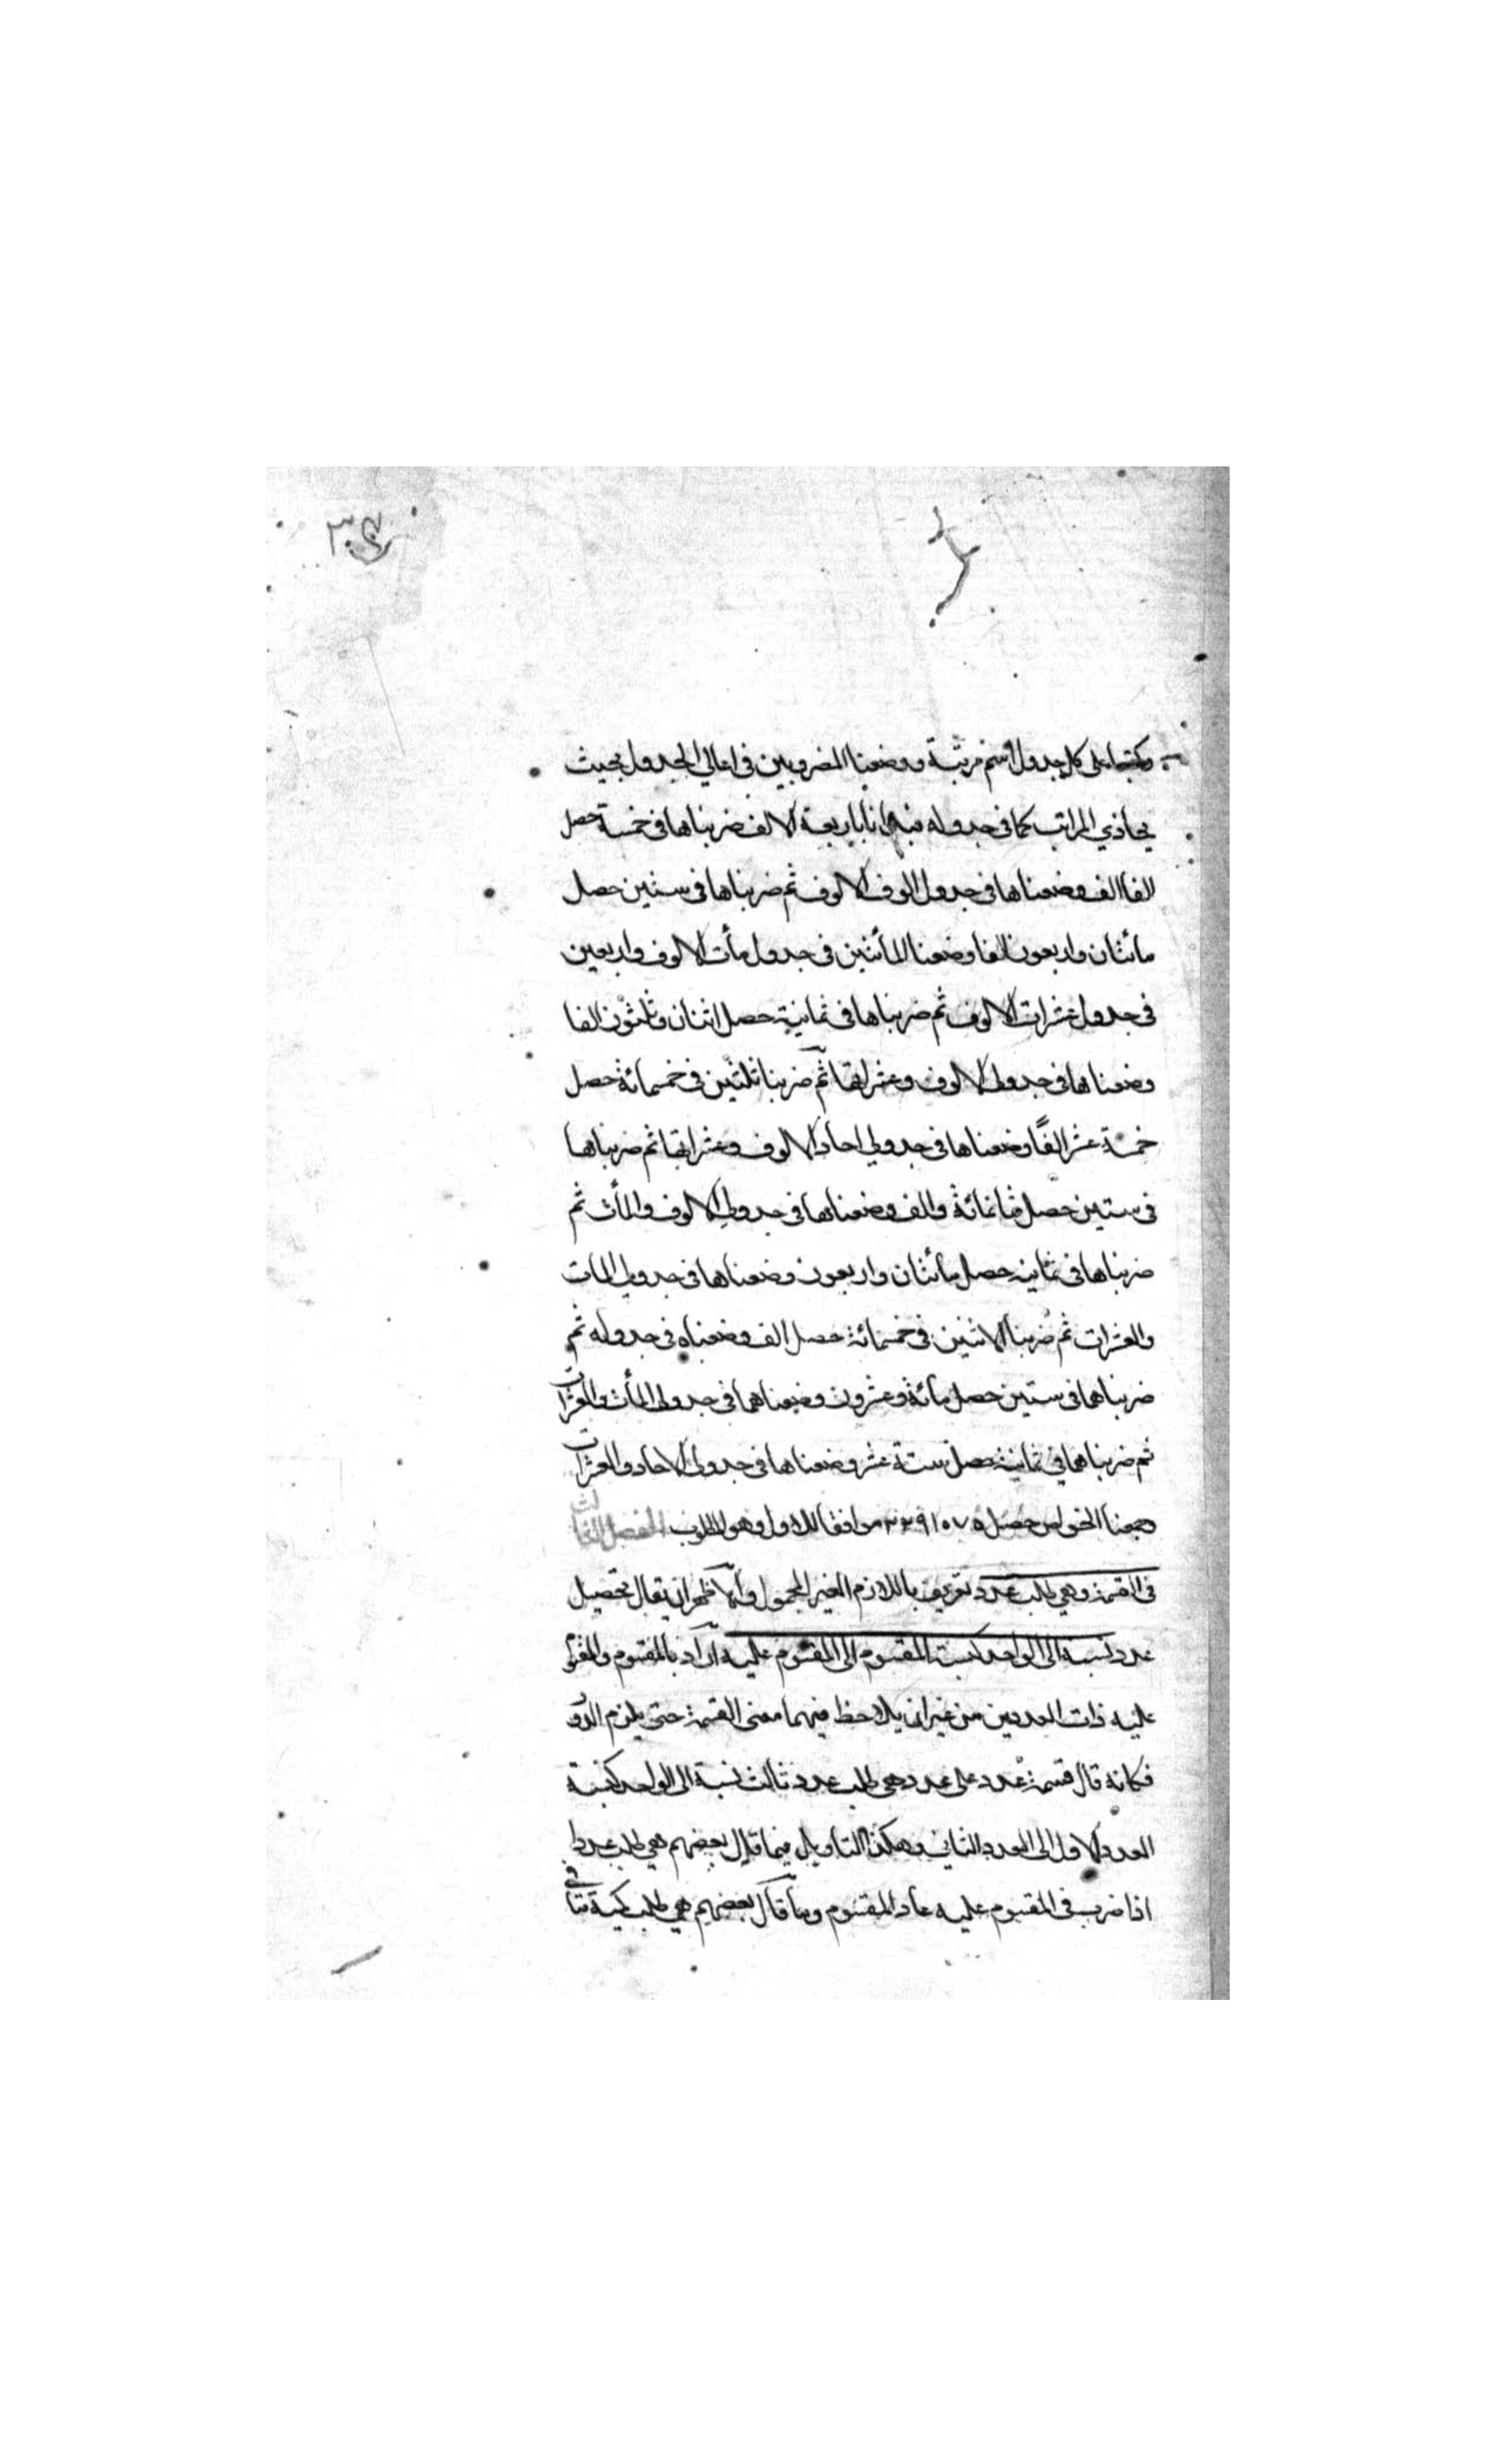 وكتبنا على كل جدول اسم مرتبة ووضعنا المضروبين فى اعالي الجدول بحيث
يحاذي المراتب كما فى جدوله باربعة الالف ضربناها فى خمسة حصل
الفا الف وضعناها فى جدول الوف الالوف ثم ضربناها فى ستين حصل
مأتنان واربعون الفا وضعنا المأتين فى جدول مأت الالوف واربعين
فى جدول عشرات الالوف ثم ضربناها فى ثمانية حصل اثنان وثلثون الفا
وضعناها فى جدولى الالوف وعشراتها ثم ضربنا ثلثين فى خمسمائة حصل
خمسة عشر الفًا وضعناها فى جدولي احاد الالوف وعشراتها ثم ضربناها
فى ستين حصل ثمانمائة والف وضعناها فى جدولي الالوف والمأت ثم
ضربناها فى ثمانية حصل مأتنان واربعون وضعناها فى جدولي المات
والعشرات ثم ضربنا الاثنين فى خمسمائة حصل الف وضعناه فى جدوله ثم
ضربناهما فى ستين حصل مائة وعشرون وضعناهما فى جدولى المأت والعشرات
ثم ضربناهما فى ثمانية حصل ستة عشر وضعناها فى جدولى الاحاد والعشرات
وجمعنا الحواصل حصل موافقا للاول وهو المطلوب الفصل الثالث
فى القسمة وهي طلب عدد تعريف باللازم الغير المحمول والاظهر ان يقال تحصيل
عدد نسبة الى الواحد كنسبة المقسوم الى المقسوم عليه اراد بالمقسوم والمقسوم
عليه ذات العددين من غير ان يلاحظ فيهما معنى القسمة حتى يلزم الدور
فكانه قال قسمة عدد على عدد هى طلب عدد ثالث نسبة الى الواحد كنسبة
العدد الاول الى العدد الثاني وهكذا التاويل فيما قال بعضهم هي طلب عدد
اذا ضرب فى المقسوم عليه عاد المقسوم وما قال بعضهم هي طلب كمية